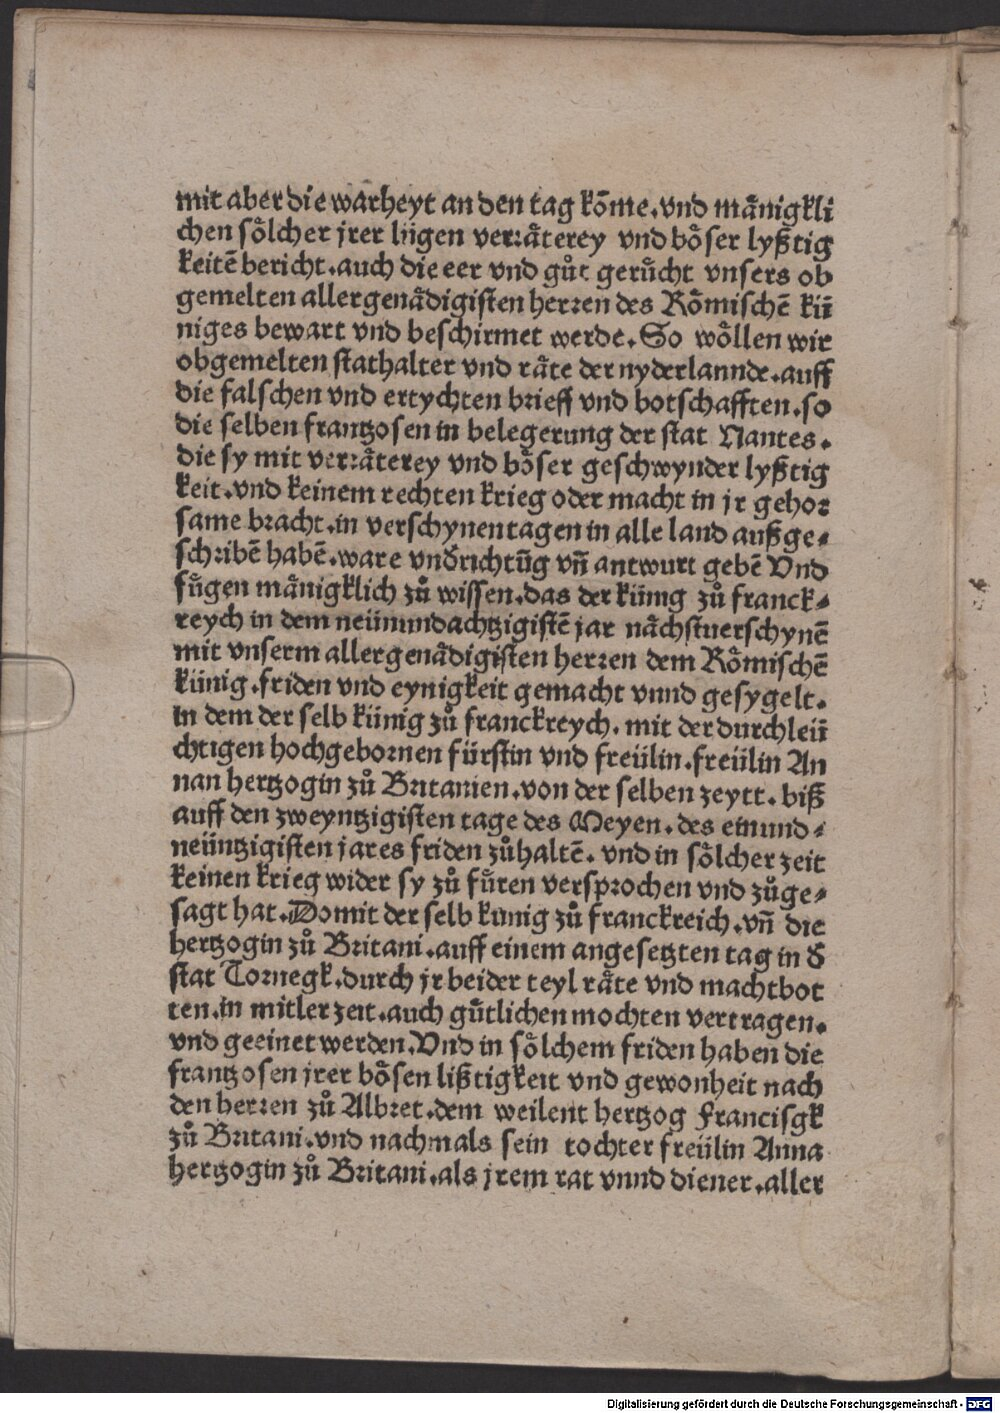 mit aber die warheyt an den tag kōme. vnd mānigkli
chen sölcher jrer lügen verräterey vnd böser lyßtig
keitē bericht. auch die eer vnd gůt gerücht vnsers ob
gemelten allergenädigisten herren des Römischē kü
niges bewart vnd beschirmet werde. So wöllen wir
obgemelten stathalter vnd räte der nyderlannde. auff
die falschen vnd ertychten brieff vnd botschafften. so
die selben frantzosen in belegerung der stat Nantes.
die sy mit verräterey vnd böser geschwynder lyßtig
keit. vnd keinem rechten krieg oder macht in jr gehor
same bracht. in verschynen tagen in alle land außge⸗
schribē habē. ware vnđrichtūg vñ antwurt gebē Vnd
fügen mänigklich zů wissen. das der künig zů franck⸗
reych in dem neünundachtzigistē jar nächstuerschynē
mit vnserm allergenädigisten herren dem Römischē
künig. friden vnd eynigkeit gemacht vnnd gesygelt.
in dem der selb künig zů franckreych. mit der durchleü
chtigen hochgebornen fürstin vnd freülin. freülin An
nan hertzogin zů Britanien. von der selben zeytt. biß
auff den zweyntzigisten tage des Meyen. des einund⸗
neüntzigisten jares friden zůhaltē. vnd in sölcher zeit
keinen krieg wider sy zů füren versprochen vnd zůge⸗
sagt hat. Domit der selb künig zů franckreich. vñ die
hertzogin zů Britani. auff einem angesetzten tag in đ
stat Tornegk. durch jr beider teyl räte vnd machtbot
ten. in mitler zeit. auch gütlichen mochten vertragen.
vnd geeinet werden. Vnd in sölchem friden haben die
frantzosen jrer bösen lißtigkeit vnd gewonheit nach
den herren zů Albret. dem weilent hertzog Francisgk
zů Britani. vnd nachmals sein tochter freülin Anna
hertzogin zů Britani. als jrem rat vnnd diener. aller
Digitalisierung gefördert durch die Deutsche Forschungsgemeinschaft - DFG